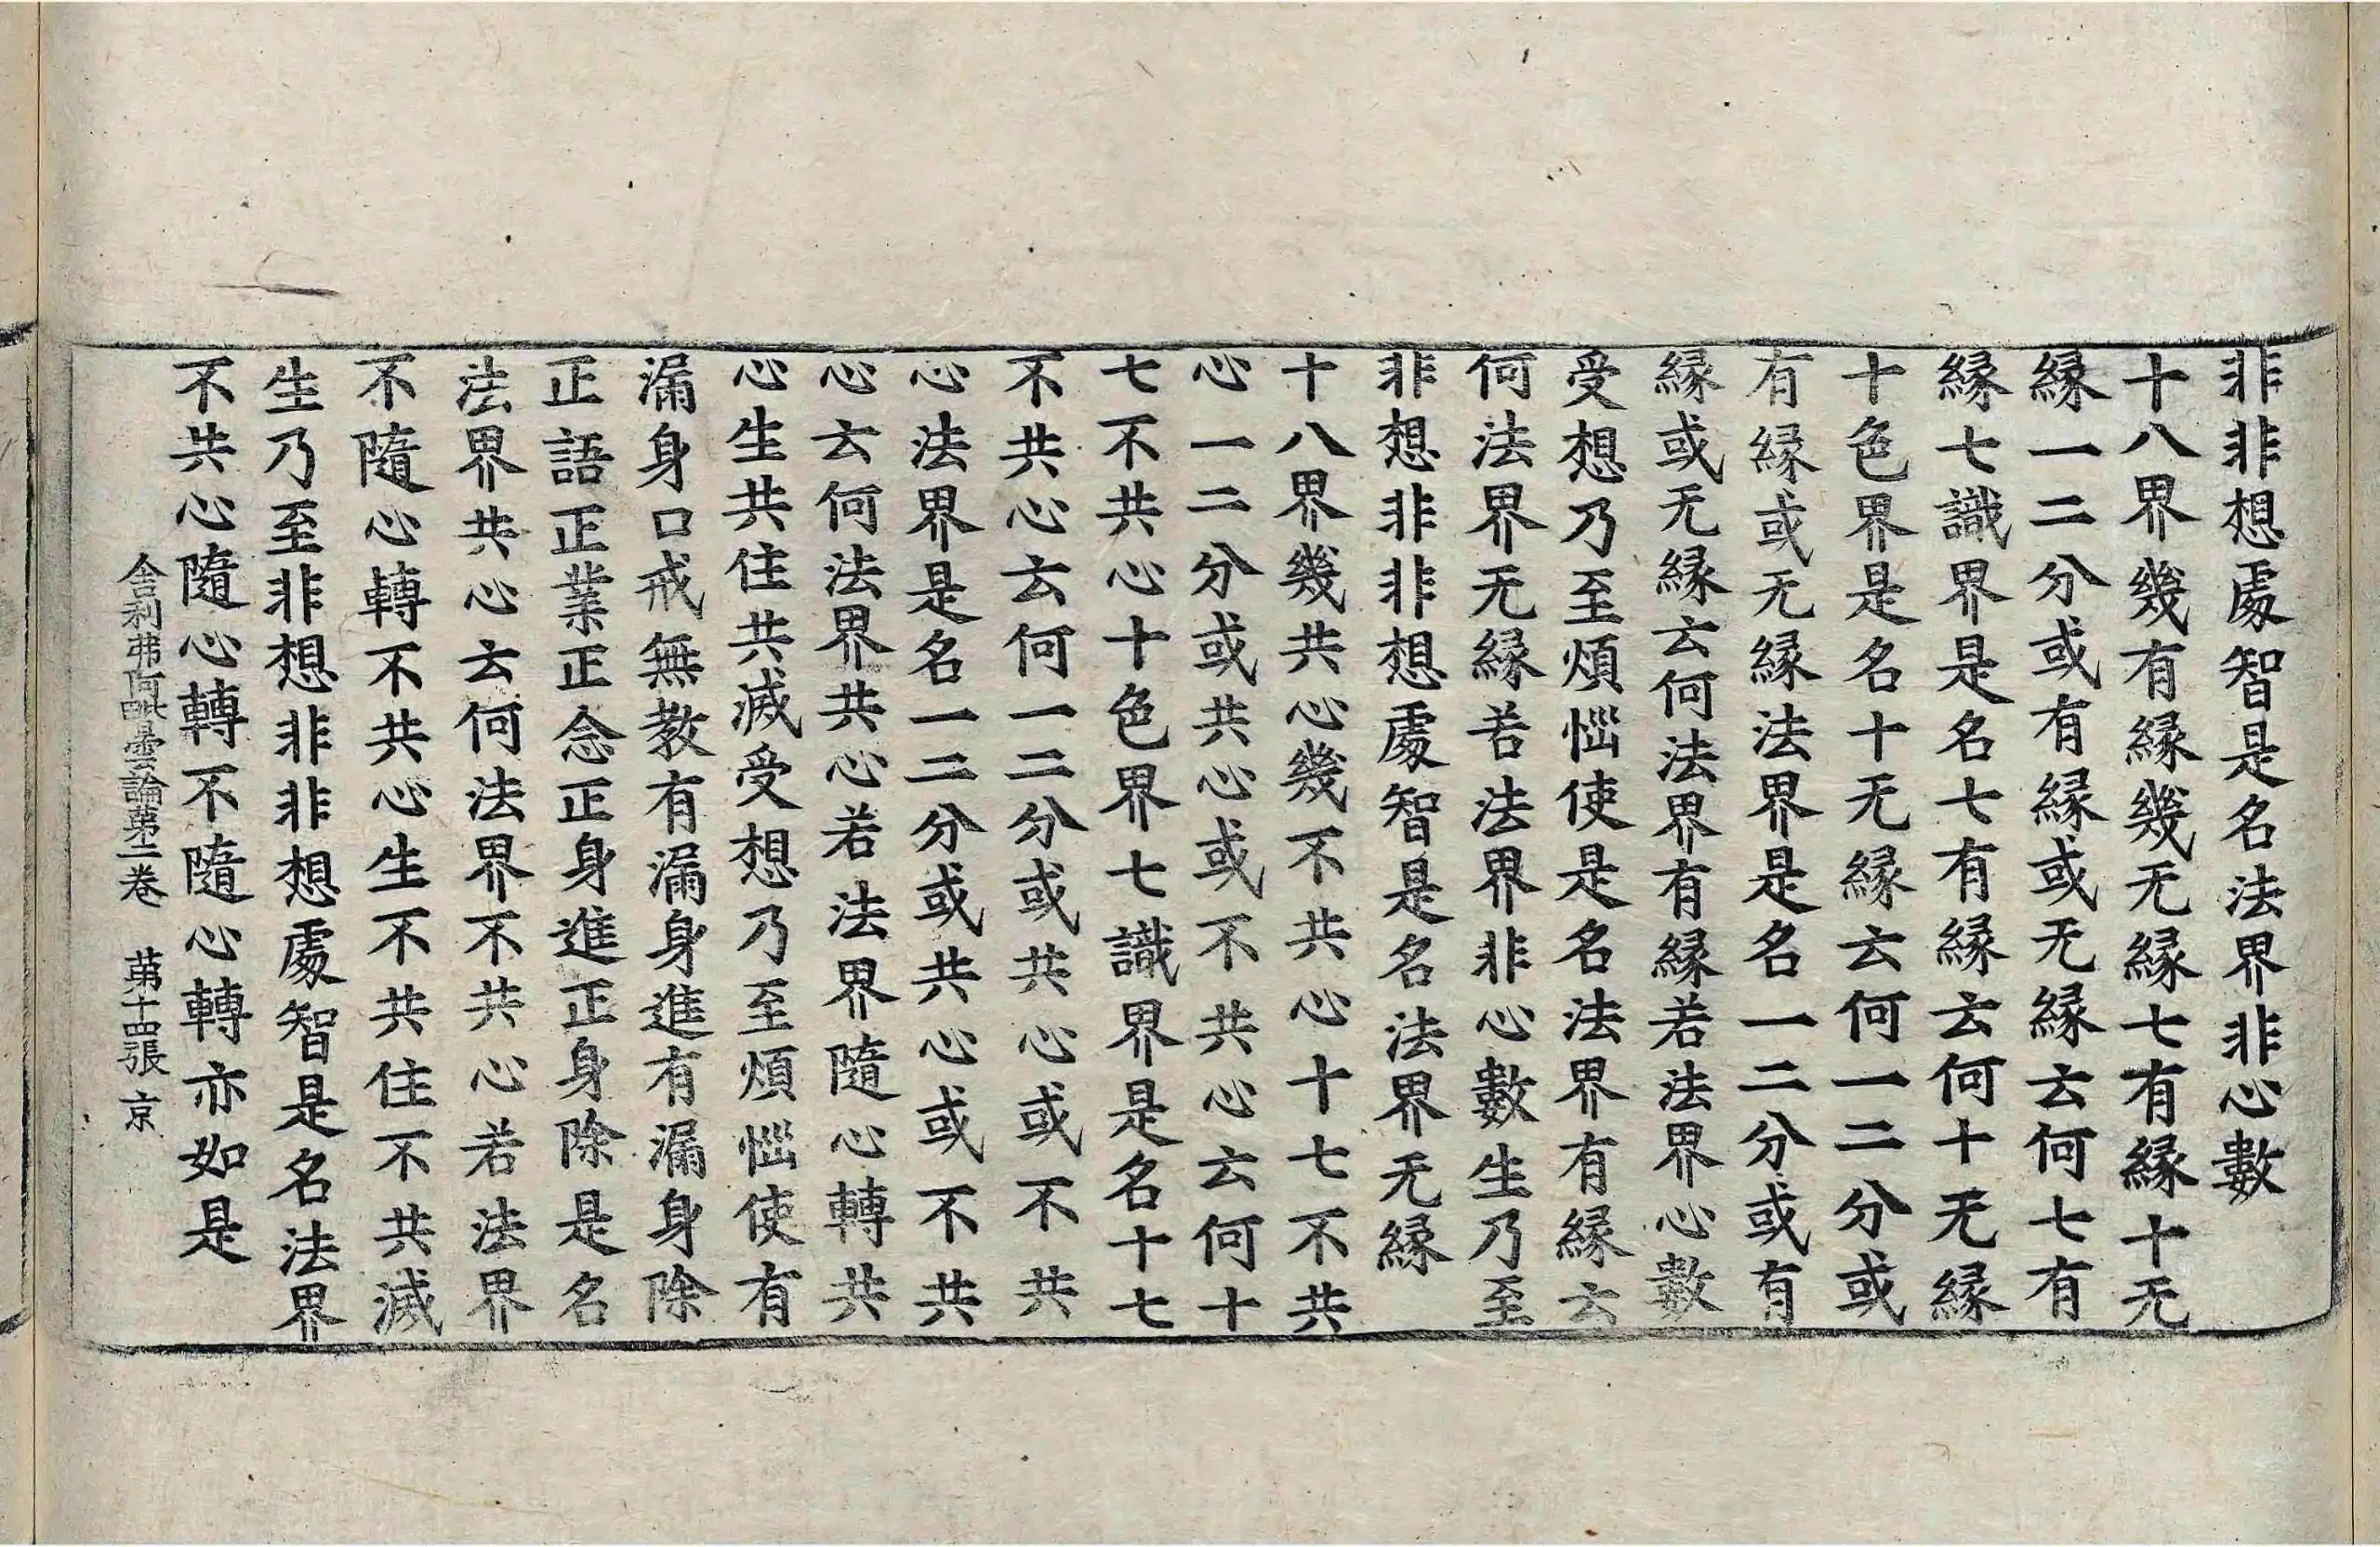 非非想處智是名法界非心數
十八界幾有縁幾无縁七有縁十无
縁一二分或有縁或无縁云何七有
縁七識界是名七有縁云何十无縁
十色界是名十无縁云何一二分或
有縁或无縁法界是名一二分或有
縁或无縁云何法界有縁若法界心數
受想乃至煩惱使是名法界有縁云
何法界无縁若法界非心數生乃至
非想非非想處智是名法界无縁
十八界幾共心幾不共心十七不共
心一二分或共心或不共心云何十
七不共心十色界七識界是名十七
不共心云何一二分或共心或不共
心法界是名一二分或共心或不共
心云何法界共心若法界隨心轉共
心生共住共滅受想乃至煩惱使有
漏身口戒無教有漏身進有漏身除
正語正業正命正身進正身除是名
法界共心云何法界不共心若法界
不隨心轉不共心生不共住不共滅
生乃至非想非非想處智是名法界
不共心隨心轉不隨心轉亦如是
舎利弗阿毗曇論第二卷 第十四張 京